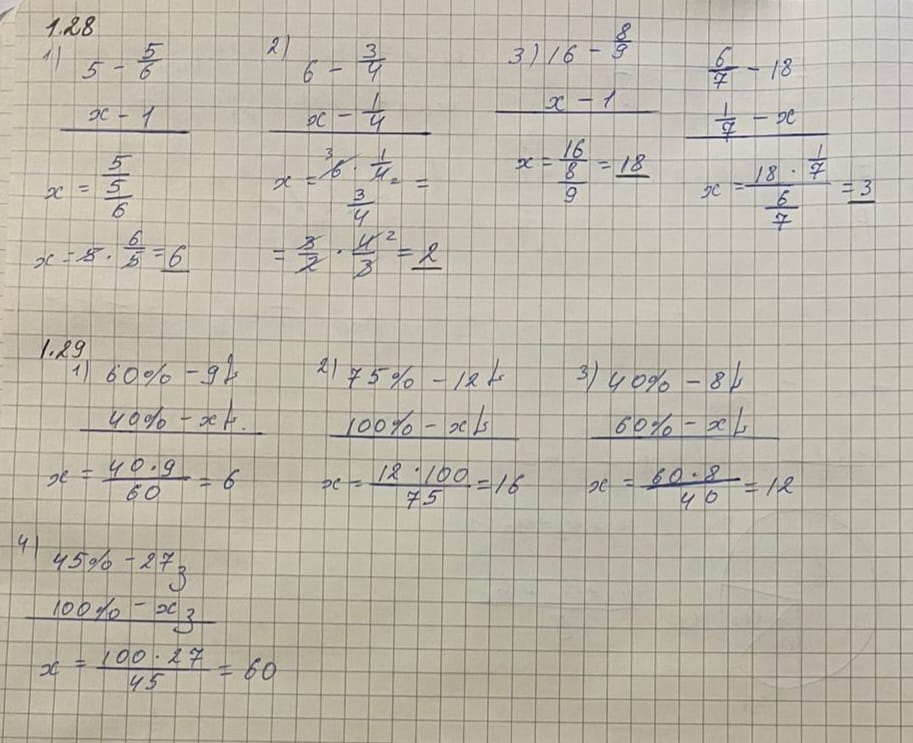 1.28
1) 5 - 5/6
x - 1
x = 5 / (5/6)
x = 5 · 6/5 = 6
2) 6 - 3/4
x - 1/4
x = 6 · 1/4 / (3/4) =
3
= 3/2 · 4/3 = 2
2
3) 16 - 8/9
x - 1
x = 16 / (8/9) = 18
6/7 - 18
1/7 - x
x = 18 · 1/7 / (6/7) = 3
1.29
1) 60% - 9
40% - x
x = 40·9/60 = 6
2) 75% - 12
100% - x
x = 12·100/75 = 16
3) 40% - 8
60% - x
x = 60·8/40 = 12
4) 45% - 27
100% - x
x = 100·27/45 = 60